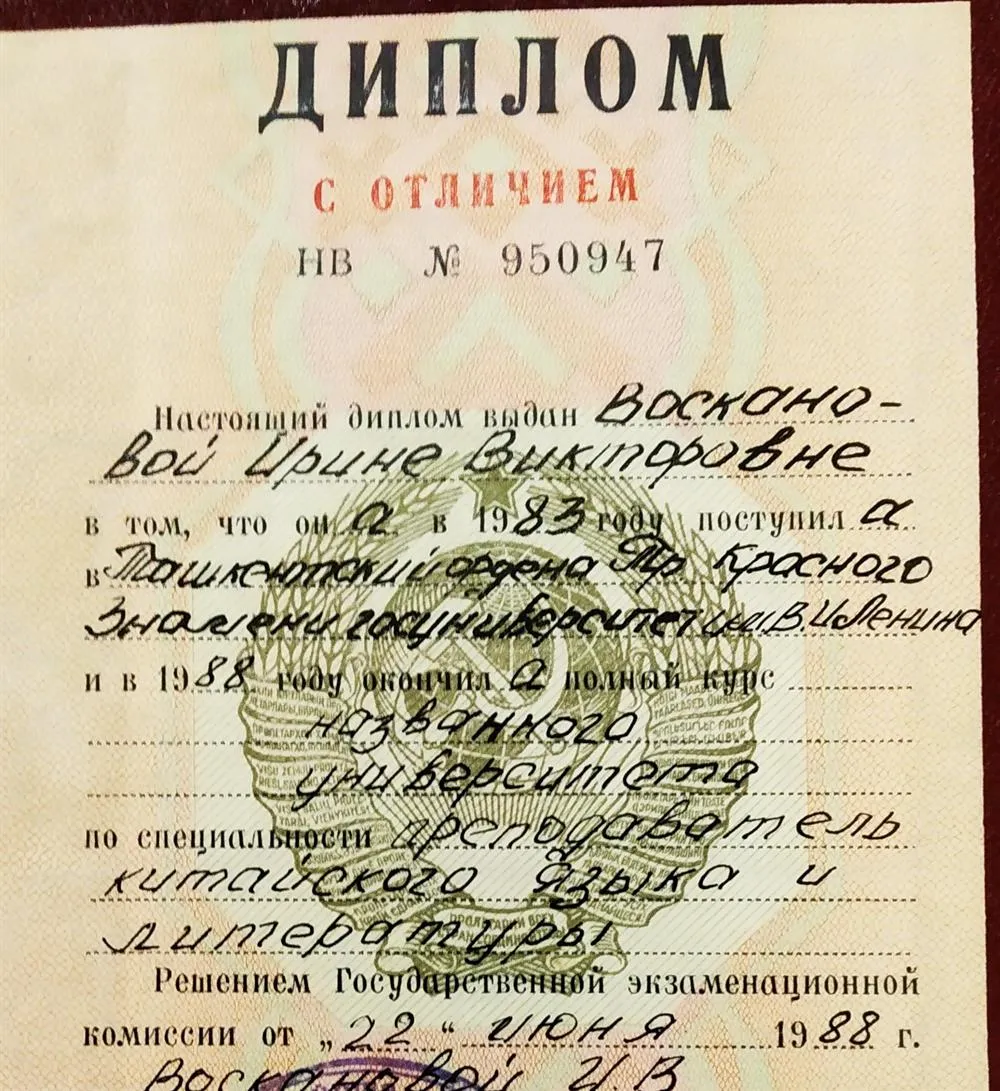 ДИПЛОМ
С ОТЛИЧИЕМ
НВ № 950947
Настоящий диплом выдан Воскано-
вой Ирине Викторовне
в том, что он а в 1983 году поступил а
в Ташкентский ордена Тр Красного
Знамени госуниверситет им. В.И.Ленина
и в 1988 году окончил а полный курс
названного
университета
по специальности преподаватель
китайского языка и
литературы
Решением Государственной экзаменационной
комиссии от „22“ июня 1988 г.
Воскановой И.В